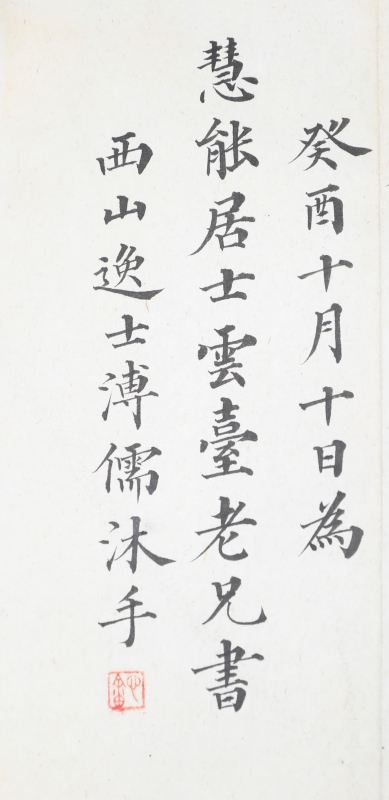 癸酉十月十日為
慧能居士雲臺老兄書
西山逸士溥儒沐手
心畬